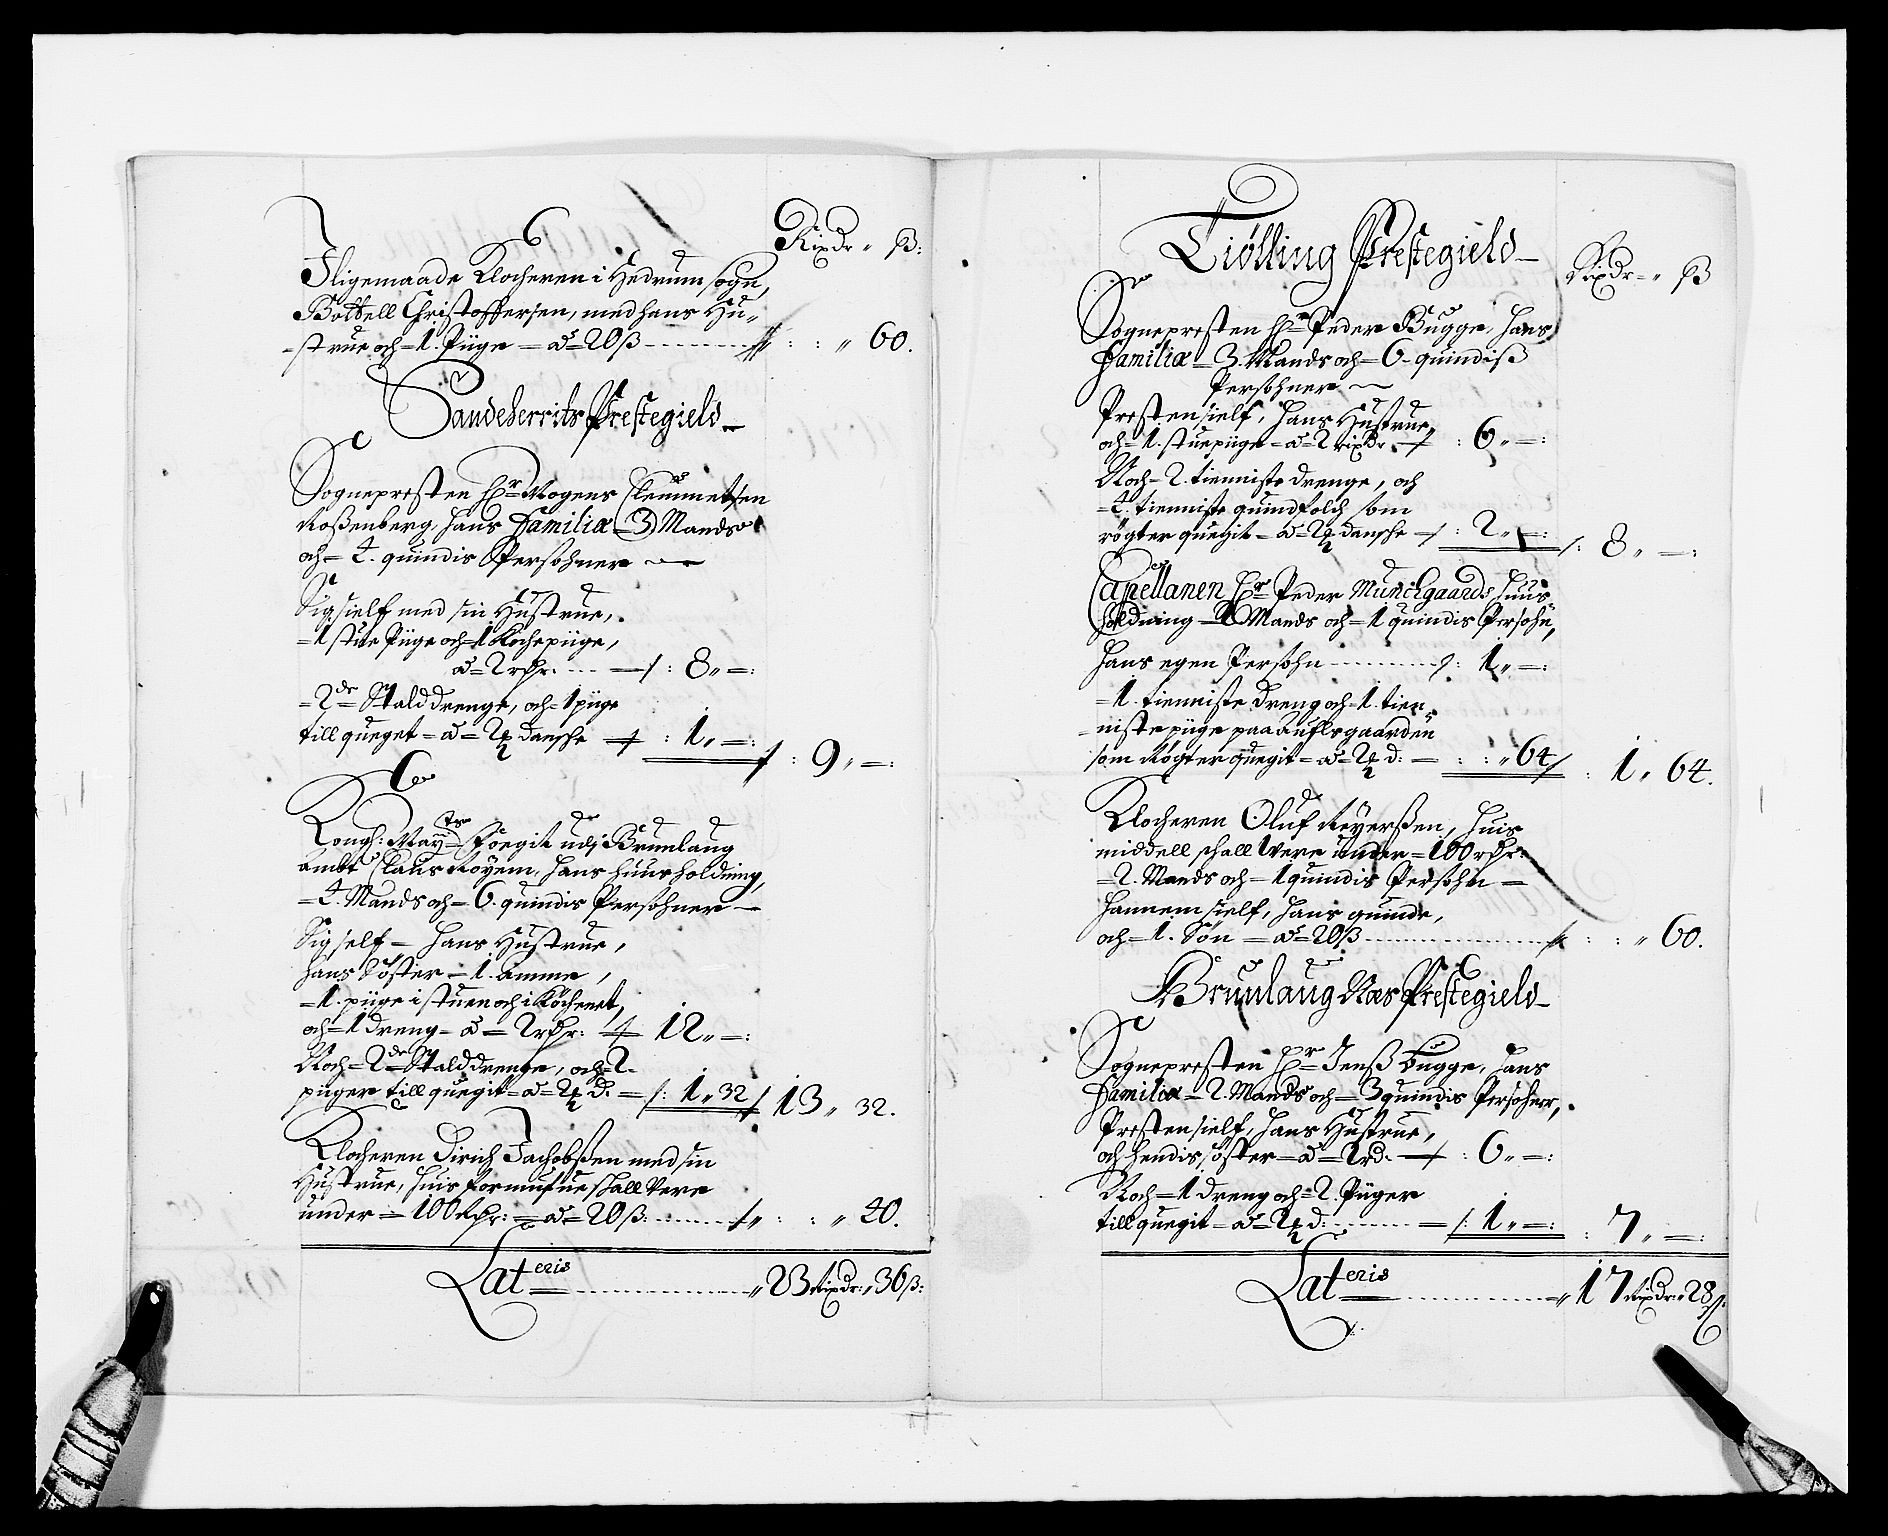 Rixdr „ ß:
Iligemaade Klocheren i Hedrum sogn,
Bottell Christoffersen, med hans Hu-
-strue och = 1. Piige = a = 20 ß ---------- : : „ 60.
Sandeherrits Prestegield
Sognepresten Hr Mogens Clemmetsen
Roßenberg, hans Familiæ = 3 Mands
och = 4. quindis Persohner
Sig sielf med sin Hustrue,
= 1 stue Piige och = 1 Kochepiige,
a = 2 rdr. ... : 8 „ = :
= 2de Stald drenge, och = 1 piige
till queget = a = 2½ dansche : 1 „ = : : 9 „ = :
Kongl: Mayts Foegit udj Brunlaug
Ambt Claus Röyem, hans huusholdning,
= 4. Mands och = 6. quindis Persohner
Sig self = hans Hustrue,
hans Söster = 1. amme,
= 1. piige i stuen och i Kochenet,
och = 1 dreng = a = 2 rdr: 12 „ = :
Noch = 2de Stald drenge, och = 2.
piiger till quegit = a = 2½ d. = : 1 „ 32 13 „ 32.
Klocheren Dirich Jachobßen med sin
Hustrue, huis formufue schall Vere
under = 100 Rdr: = a = 20 ß: ........ : : „ 40.
Lateris ................ „ 23 Rixdr: „ 36 ß:
Tiølling Prestegield
Rixdr = „ ß
Sognepresten Hr Peder Bugge, hans
Familiæ = 3. Mands och = 6 quindiß
Persohner
Presten sielf, hans Hustrue,
och = 1. stuepiige = a = 2 rixdr. : 6 „ = :
Noch = 2. tienniste drenge, och
= 4. tienniste quindfolch som
rögter quegit = a = 2½ dansche : 2 „ = : : 8 „ = :
Capellanen Hr Peder Munchgaards huus
holdning = 2 Mands och = 1 quindis Persohn,
hans egen Persohn ............ : 1 „ = :
= 1. tienniste dreng och = 1. tien-
niste piige paa Auflsgaarden
som Rögter quegit = a = 2½ d: = : : „ 64 : 1 „ 64.
Klocheren Oluf Reyerßen, huis
middell schall Were under = 100 rdr:
= 2. Mands och = 1 quindis Persohn =
hannem sielf, hans quinde,
och = 1. Sön = a = 20 ß .................. : : „ 60.
Brunlaug Næs Prestegield
Sognepresten Hr Jenß Bugge, hans
Familiæ = 2. Mands och = 3 quindis Persohner,
Presten sielf, hans Hustrue,
och hendis söster = a = 2 rd. : 6 „ = :
Noch = 1 dreng och = 2. Piiger
till quegit = a = 2½ d: ........ = : 1 „ = : : 7 „ = :
Lateris ................ „ 17 Rixdr: „ 28 ß: